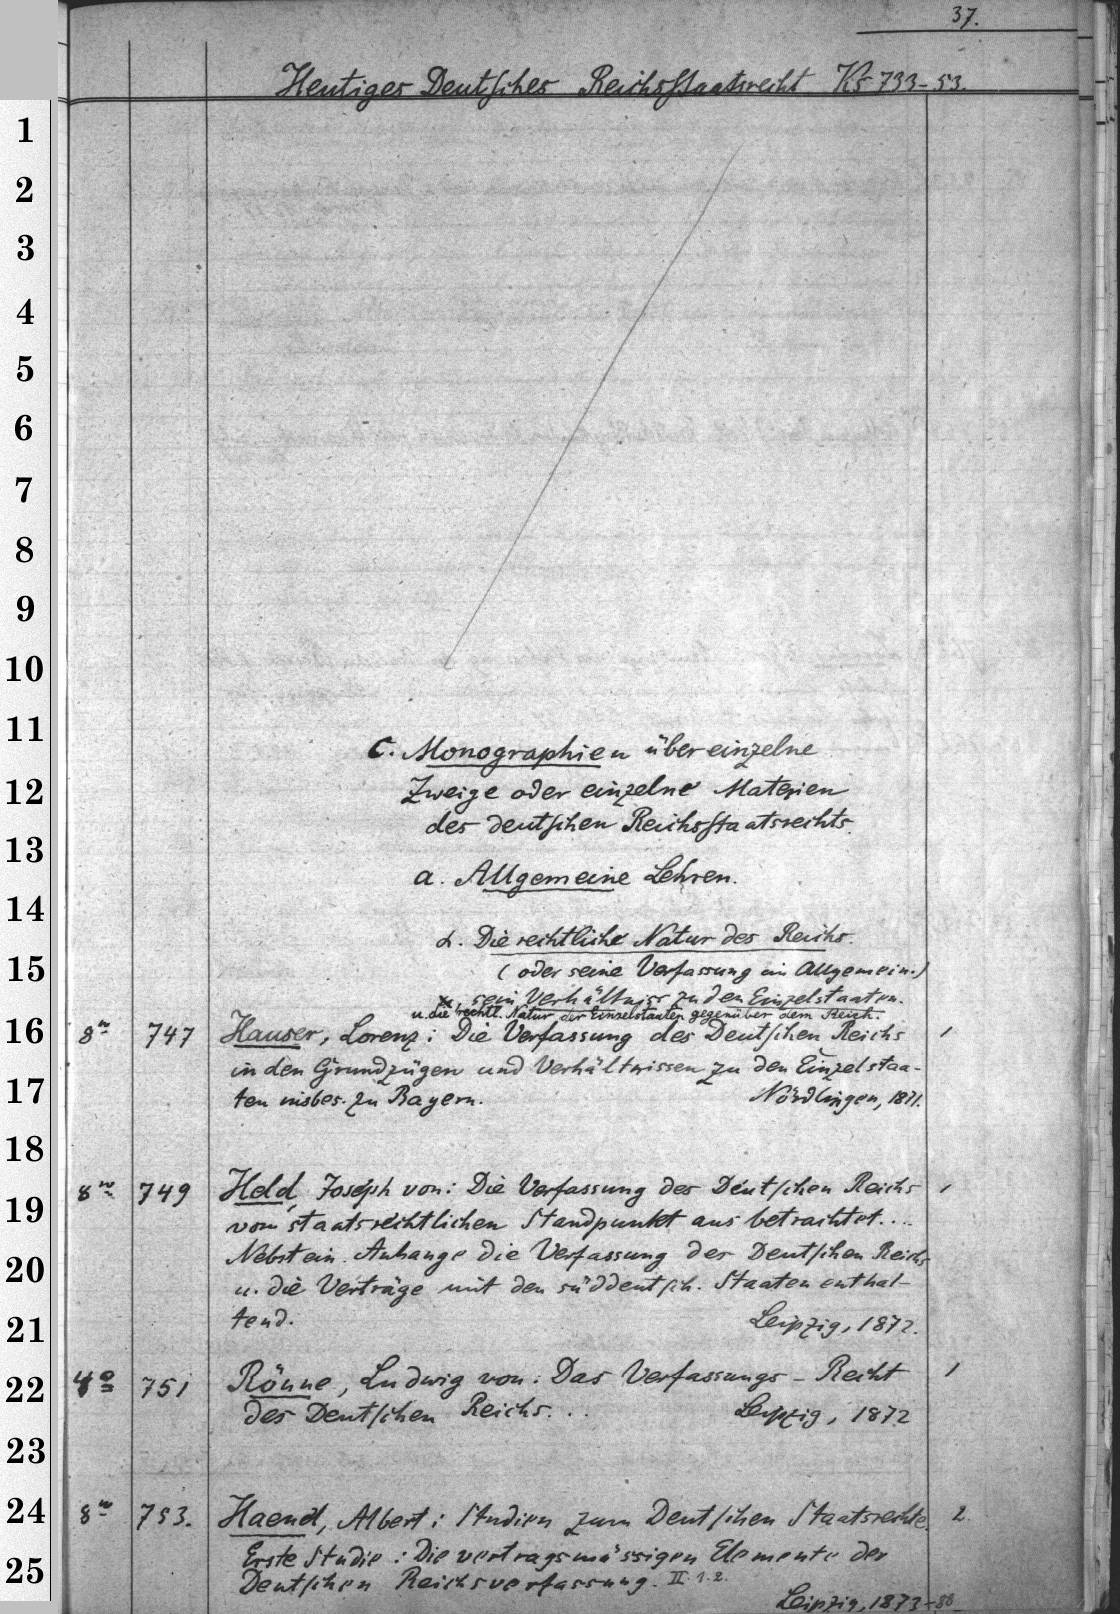 37.
Heutiges Deutsches Reichsstaatsrecht Ks 733-53.
1
2
3
4
5
6
7
8
9
10
11
C. Monographien über einzelne
12
Zweige oder einzelne Materien
des deutschen Reichsstaatsrechts.
13
a. Allgemeine Lehren.
14
α. Die rechtliche Natur des Reichs.
15
(oder seine Verfassung im Allgemein.)
sein Verhältniss zu den Einzelstaaten.
u. die rechtl. Natur der Einzelstaaten gegenüber dem Reich.
16
8º 747 Hauser, Lorenz: Die Verfassung des Deutschen Reichs 1
in den Grundzügen und Verhältnissen zu den Einzelstaa-
17
ten insbes. zu Bayern. Nördlingen, 1871.
18
8º 749 Held, Joseph von: Die Verfassung des Deutschen Reichs 1
19
vom staatsrechtlichen Standpunkt aus betrachtet....
Nebst ein. Anhange die Verfassung des Deutschen Reichs
20
u. die Verträge mit den süddeutsch. Staaten enthal-
21
tend. Leipzig, 1872.
22
4º 751 Rönne, Ludwig von: Das Verfassungs-Recht 1
des Deutschen Reichs... Leipzig, 1872
23
24
8º 753. Haenel, Albert: Studien zum Deutschen Staatsrechte. 2
Erste Studie: Die vertragsmässigen Elemente der
25
Deutschen Reichsverfassung. II. 1. 2.
Leipzig, 1873-88